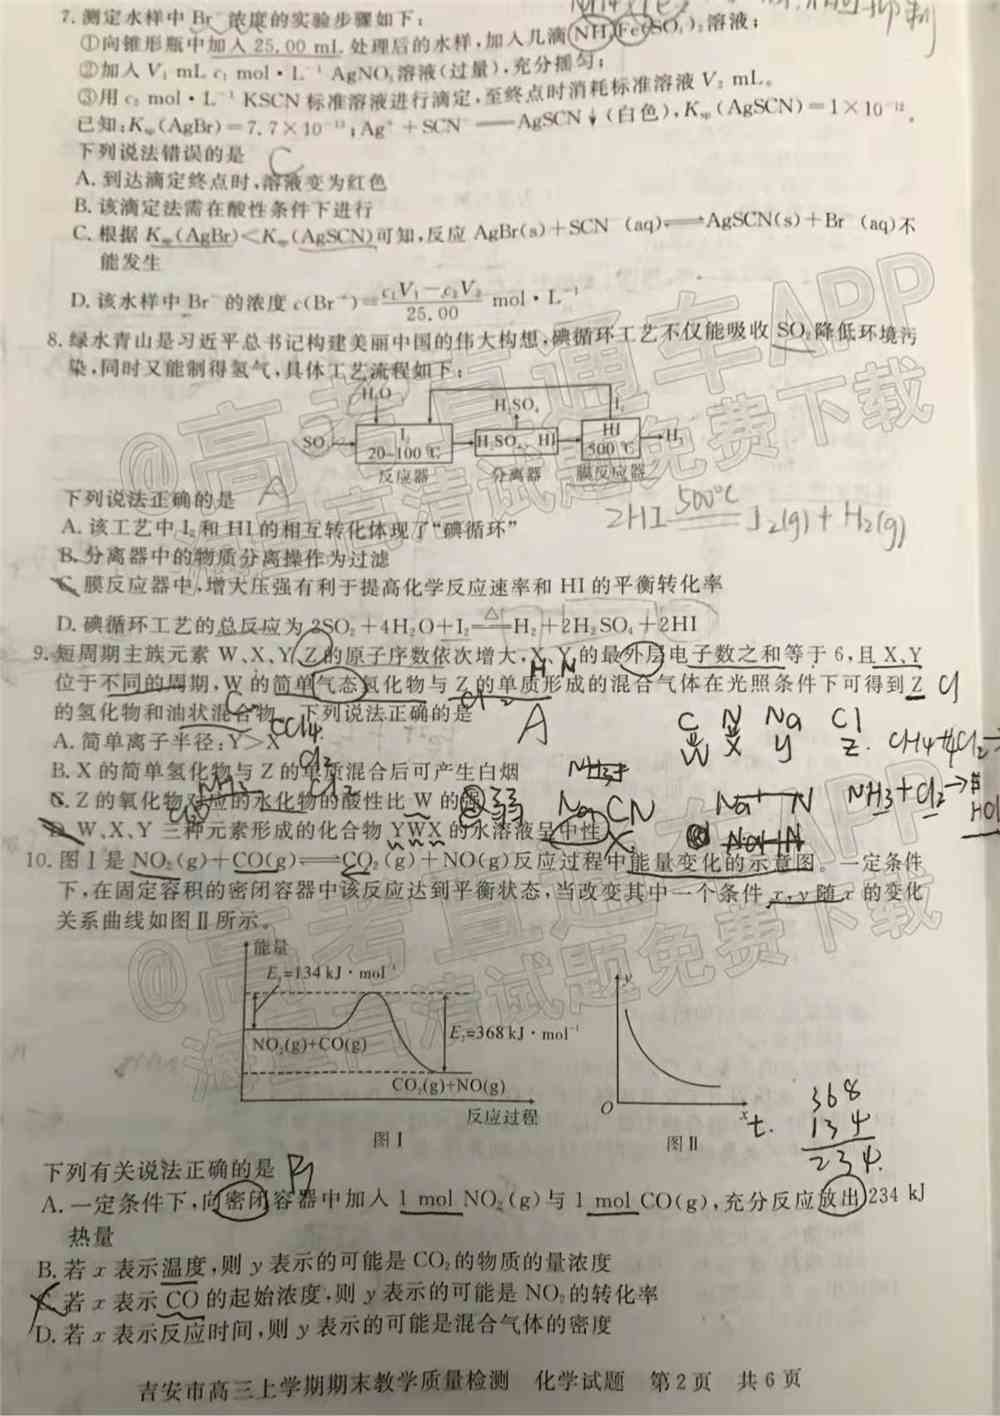 7. 测定水样中 Br⁻ 浓度的实验步骤如下:
①向锥形瓶中加入 25.00 mL 处理后的水样,加入几滴 NH₄Fe(SO₄)₂ 溶液;
②加入 V₁ mL c₁ mol·L⁻¹ AgNO₃ 溶液(过量),充分摇匀;
③用 c₂ mol·L⁻¹ KSCN 标准溶液进行滴定,至终点时消耗标准溶液 V₂ mL。
已知:Ksp(AgBr)=7.7×10⁻¹³;Ag⁺+SCN⁻══AgSCN↓(白色),Ksp(AgSCN)=1×10⁻¹²。
下列说法错误的是 C
A. 到达滴定终点时,溶液变为红色
B. 该滴定法需在酸性条件下进行
C. 根据 Ksp(AgBr)<Ksp(AgSCN)可知,反应 AgBr(s)+SCN⁻(aq)⇌AgSCN(s)+Br⁻(aq)不
能发生
D. 该水样中 Br⁻ 的浓度 c(Br⁻)=(c₁V₁−c₂V₂)/25.00 mol·L⁻¹
8. 绿水青山是习近平总书记构建美丽中国的伟大构想,碘循环工艺不仅能吸收 SO₂ 降低环境污
染,同时又能制得氢气,具体工艺流程如下:
H₂O H₂SO₄ I₂
SO₂ I₂ 20~100 ℃ H₂SO₄、HI HI 500 ℃ H₂
反应器 分离器 膜反应器
下列说法正确的是 A
2HI 500℃ I₂(g)+H₂(g)
A. 该工艺中 I₂ 和 HI 的相互转化体现了“碘循环”
B. 分离器中的物质分离操作为过滤
C. 膜反应器中,增大压强有利于提高化学反应速率和 HI 的平衡转化率
D. 碘循环工艺的总反应为 2SO₂+4H₂O+I₂══△══H₂+2H₂SO₄+2HI
9. 短周期主族元素 W、X、Y、Z 的原子序数依次增大,X、Y 的最外层电子数之和等于 6,且 X、Y
位于不同的周期,W 的简单气态氢化物与 Z 的单质形成的混合气体在光照条件下可得到 Z
的氢化物和油状混合物。下列说法正确的是 A
C N Na Cl
W X Y Z.
A. 简单离子半径:Y>X
B. X 的简单氢化物与 Z 的单质混合后可产生白烟
NH₃+Cl₂→
C. Z 的氧化物对应的水化物的酸性比 W 的强 弱
NaCN
D. W、X、Y 三种元素形成的化合物 YWX 的水溶液呈中性
10. 图 Ⅰ 是 NO₂(g)+CO(g)⇌CO₂(g)+NO(g)反应过程中能量变化的示意图。一定条件
下,在固定容积的密闭容器中该反应达到平衡状态,当改变其中一个条件 x,y 随 x 的变化
关系曲线如图 Ⅱ 所示。
能量
E₁=134 kJ·mol⁻¹
NO₂(g)+CO(g)
E₂=368 kJ·mol⁻¹
CO₂(g)+NO(g)
反应过程
图 Ⅰ
y
O x t.
图 Ⅱ
368
134
234.
下列有关说法正确的是 B
A. 一定条件下,向密闭容器中加入 1 mol NO₂(g)与 1 mol CO(g),充分反应放出 234 kJ
热量
B. 若 x 表示温度,则 y 表示的可能是 CO₂ 的物质的量浓度
C. 若 x 表示 CO 的起始浓度,则 y 表示的可能是 NO₂ 的转化率
D. 若 x 表示反应时间,则 y 表示的可能是混合气体的密度
吉安市高三上学期期末教学质量检测 化学试题 第 2 页 共 6 页
@高考直通车APP
海量高清试题免费下载
@高考直通车APP
海量高清试题免费下载